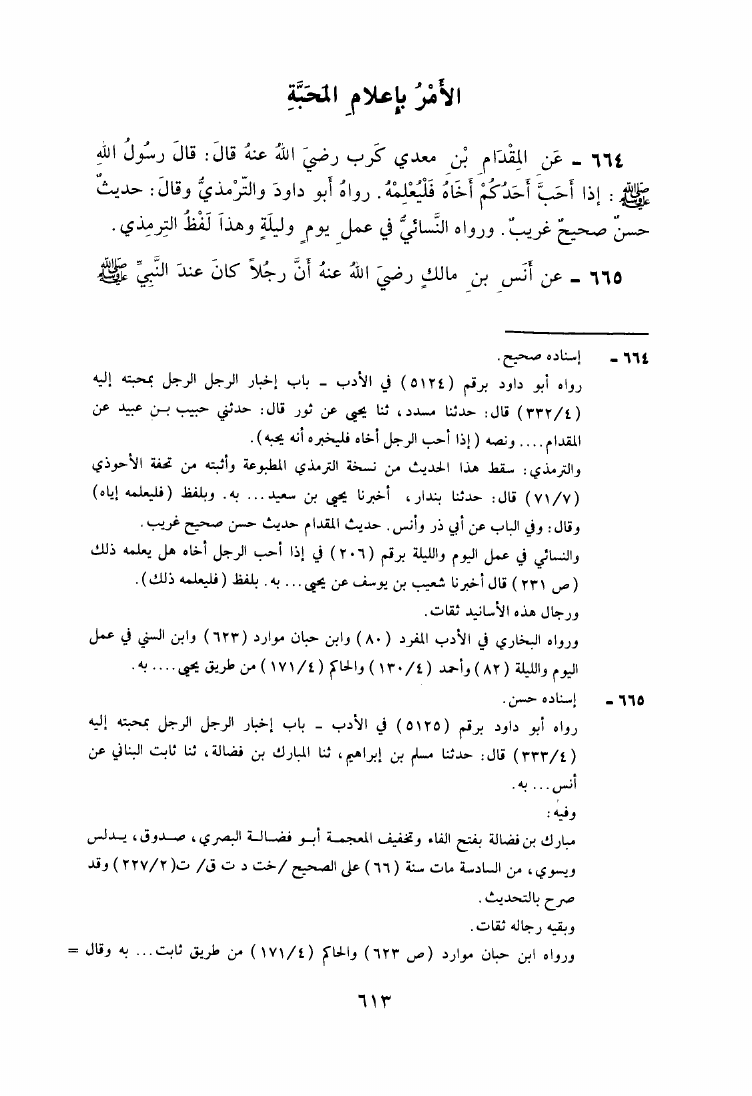 الأَمْرُ بإعلامِ المَحَبَّةِ
٦٦٤ ـ عَن المِقْدَامِ بْنِ معدي كَرب رضيَ اللهُ عنهُ قالَ: قالَ رسُولُ اللهِ
ﷺ: إذا أَحَبَّ أَحَدُكُمْ أَخَاهُ فَلْيُعْلِمْهُ. رواهُ أبو داودَ والتّرْمذيُّ وقالَ: حديثٌ
حسنٌ صحيحٌ غريبٌ. ورواه النَّسائيُّ في عملِ يومٍ وليلَةٍ وهذاَ لَفْظُ التِرمِذي.
٦٦٥ ـ عن أَنَسِ بنِ مالكٍ رضيَ اللهُ عنهُ أَنَّ رجُلاً كانَ عندَ النَّبيِّ ﷺ
٦٦٤ ـ إسناده صحيح.
رواه أبو داود برقم (٥١٢٤) في الأدب ـ باب إخبار الرجل الرجل بمحبته إليه
(٣٣٢/٤) قال: حدثنا مسدد، ثنا يحيى عن ثور قال: حدثني حبيب بن عبيد عن
المقدام.... ونصه (إذا أحب الرجل أخاه فليخبره أنه يحبه).
والترمذي: سقط هذا الحديث من نسخة الترمذي المطبوعة وأثبته من تحفة الأحوذي
(٧١/٧) قال: حدثنا بندار، أخبرنا يحيى بن سعيد... به. وبلفظ (فليعلمه إياه)
وقال: وفي الباب عن أبي ذر وأنس. حديث المقدام حديث حسن صحيح غريب.
والنسائي في عمل اليوم والليلة برقم (٢٠٦) في إذا أحب الرجل أخاه هل يعلمه ذلك
(ص ٢٣١) قال أخبرنا شعيب بن يوسف عن يحيى... به. بلفظ (فليعلمه ذلك).
ورجال هذه الأسانيد ثقات.
ورواه البخاري في الأدب المفرد (٨٠) وابن حبان موارد (٦٢٣) وابن السني في عمل
اليوم والليلة (٨٢) وأحمد (١٣٠/٤) والحاكم (١٧١/٤) من طريق يحيى.... به.
٦٦٥ ـ إسناده حسن.
رواه أبو داود برقم (٥١٢٥) في الأدب ـ باب إخبار الرجل الرجل بمحبته إليه
(٣٣٣/٤) قال: حدثنا مسلم بن إبراهيم، ثنا المبارك بن فضالة، ثنا ثابت البناني عن
أنس... به.
وفيه:
مبارك بن فضالة بفتح الفاء وتخفيف المعجمة أبو فضالة البصري، صدوق، يدلس
ويسوي، من السادسة مات سنة (٦٦) على الصحيح /خت د ت ق/ ت(٢٢٧/٢) وقد
صرح بالتحديث.
وبقيه رجاله ثقات.
ورواه ابن حبان موارد (ص ٦٢٣) والحاكم (١٧١/٤) من طريق ثابت... به وقال =
٦١٣